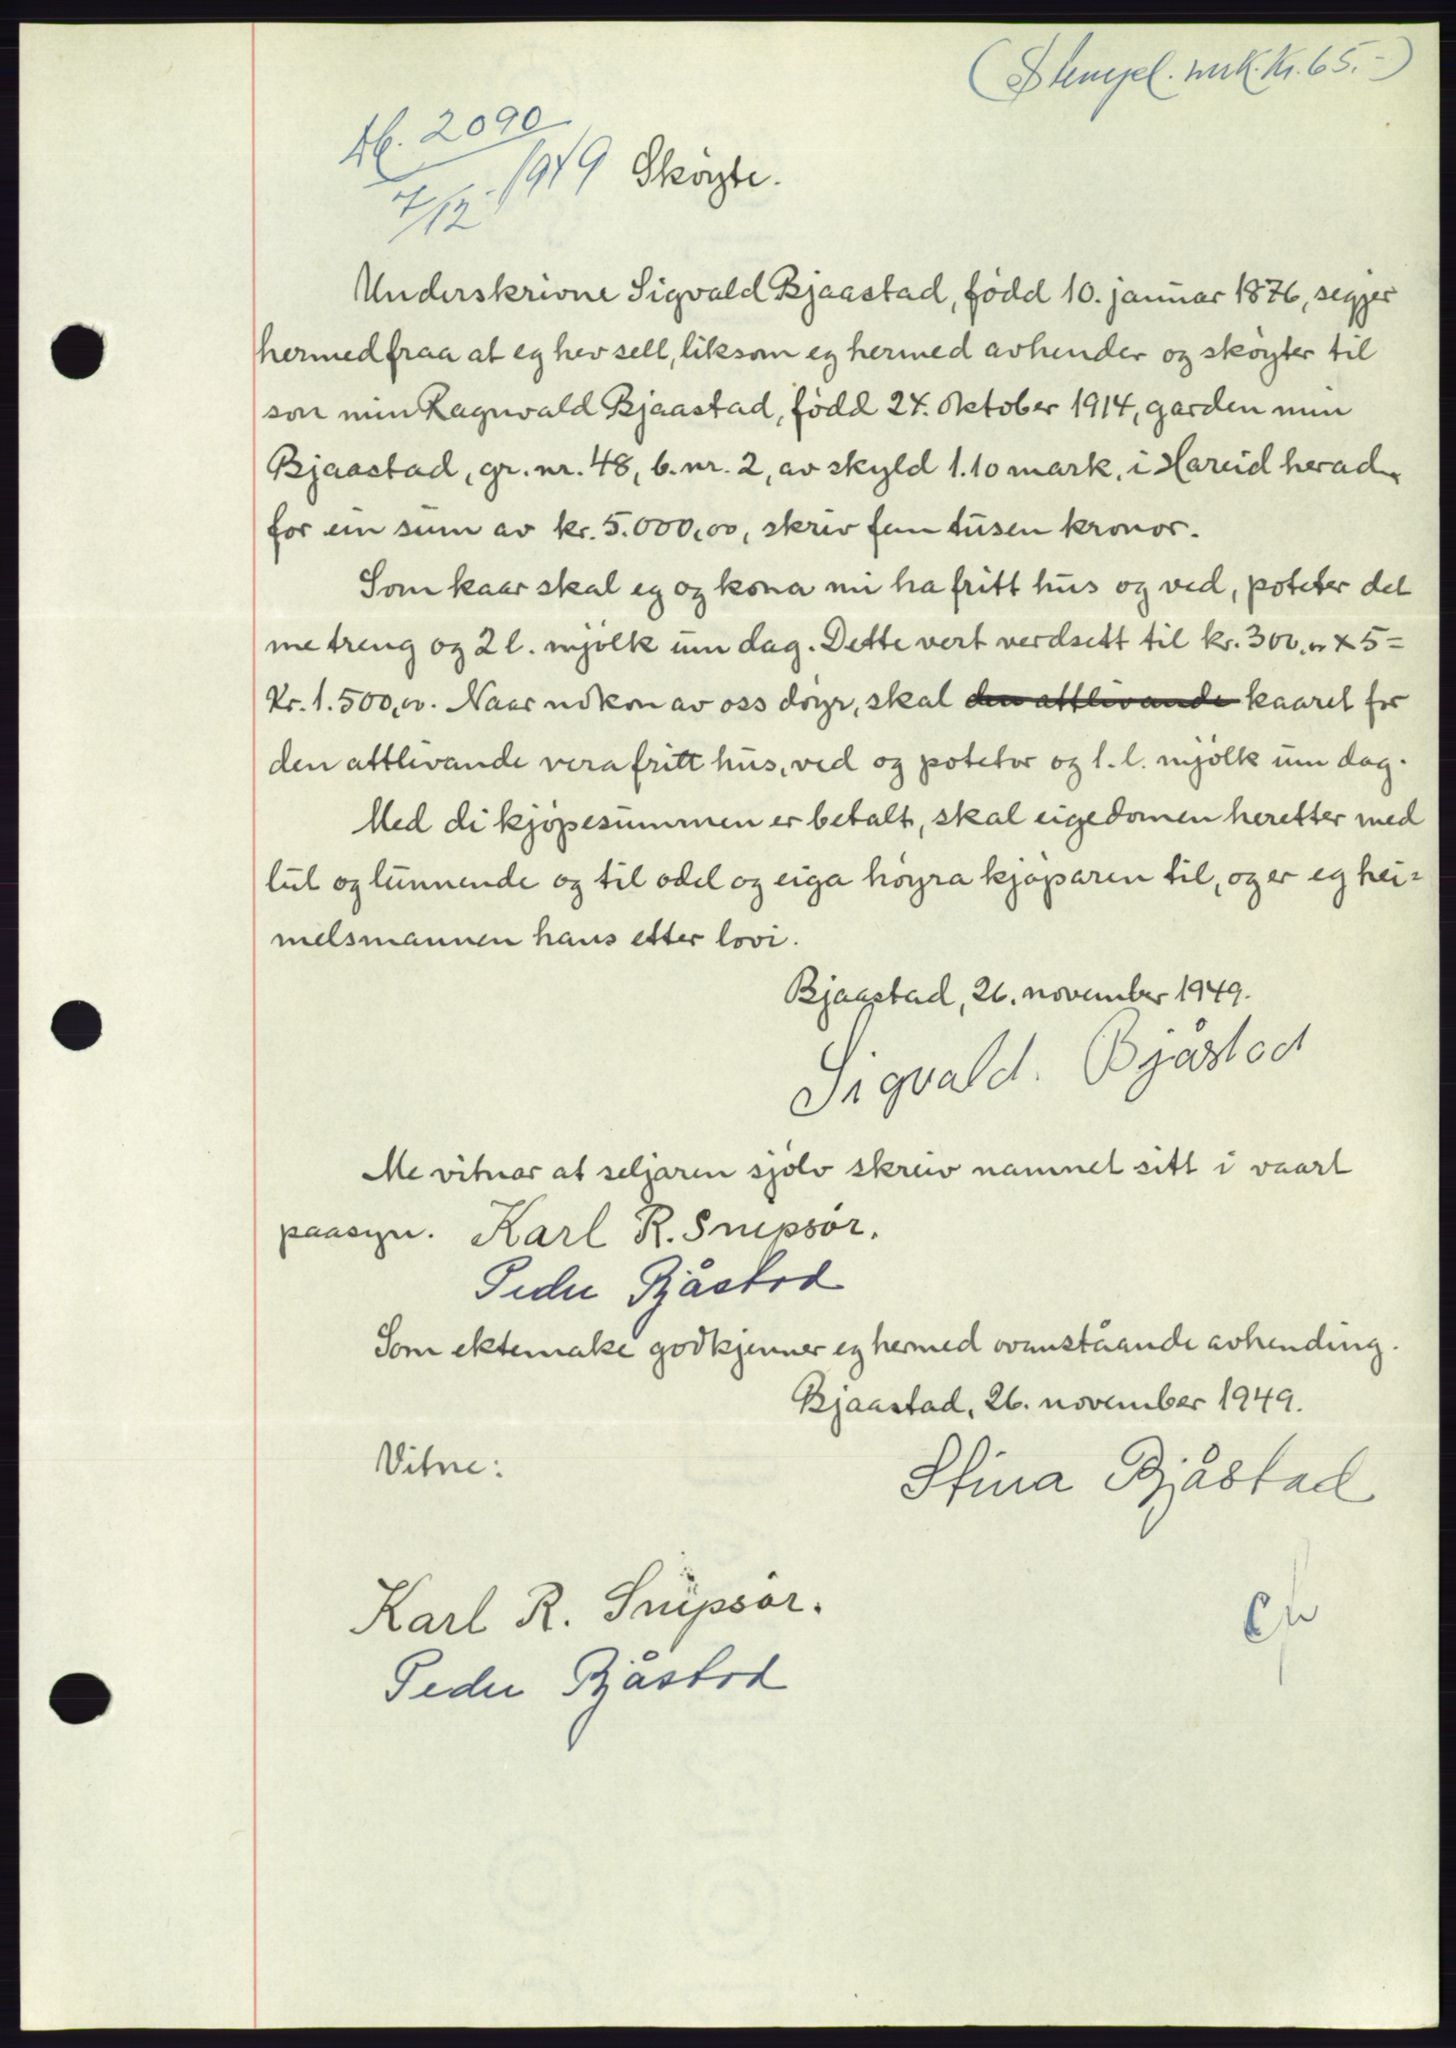 (Stempel. mrk. kr. 65.-)
Db. 2090
7/12 1949
Skøyte.
Underskrivne Sigvald Bjaastad, fødd 10. januar 1876, segjer
hermed fraa at eg hev sell, liksom eg hermed avhender og skøyter til
son min Ragnvald Bjaastad, fødd 24. oktober 1914, garden min
Bjaastad, gr. nr. 48, b. nr. 2, av skyld 1.10 mark, i Hareid herad,
for ein sum av kr. 5.000,00, skriv fem tusen kronor.
Som kaar skal eg og kona mi ha fritt hus og ved, poteter det
me treng og 2 l. mjølk um dag. Dette vert verdsett til kr. 300,00 x 5 =
kr. 1.500,00. Naar nokon av oss døyr, skal den attlivande kaaret for
den attlivande vera fritt hus, ved og poteter og 1. l. mjølk um dag.
Med di kjøpesummen er betalt, skal eigedomen heretter med
lut og lunnende og til odel og eiga høyra kjøparen til, og er eg hei=
melsmannen hans etter lovi.
Bjaastad, 26. november 1949.
Sigvald. Bjåstad
Me vitnar at seljaren sjølv skreiv namnet sitt i vaart
paasyn. Karl R. Snipsør.
Peder Bjåstad
Som ektemake godkjenner eg hermed ovanståande avhending.
Bjaastad, 26. november 1949.
Vitne:
Stina Bjåstad
Karl R. Snipsør.
Peder Bjåstad